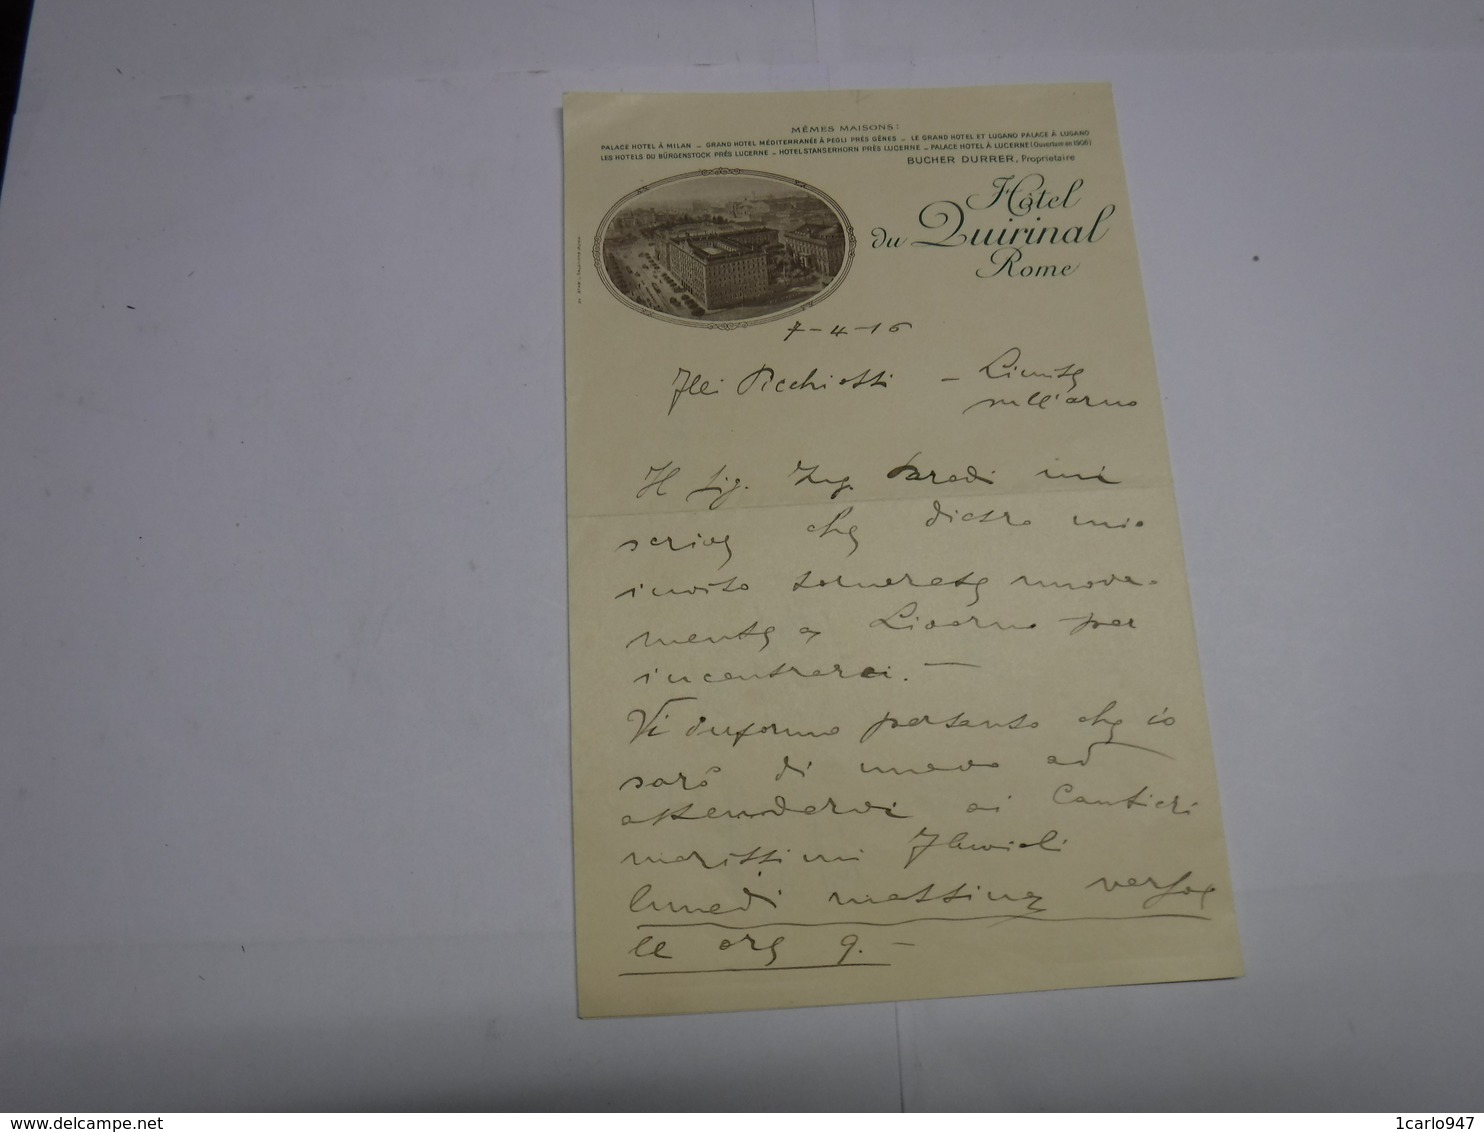 MÊMES MAISONS:
PALACE HOTEL À MILAN _ GRAND HOTEL MÉDITERRANÉE À PEGLI PRÈS GÊNES _ LE GRAND HOTEL ET LUGANO PALACE À LUGANO
LES HOTELS DU BÜRGENSTOCK PRÈS LUCERNE _ HOTEL STANSERHORN PRÈS LUCERNE _ PALACE HOTEL À LUCERNE (Ouverture en 1906)
BUCHER DURRER, Propriétaire
Hôtel
du Quirinal
Rome
7-4-16
Flli Picchiotti - Limite
sull'arno
Il Sig. Ing. Parodi mi
scrive che dietro mio
invito tornerete nuova-
mente a Livorno per
incontrarci. -
Vi informo pertanto che io
sarò di nuovo ad
attendervi ai Cantieri
marittimi Fluviali
lunedì mattina verso
le ore 9. -
delcampe.net
1carlo947